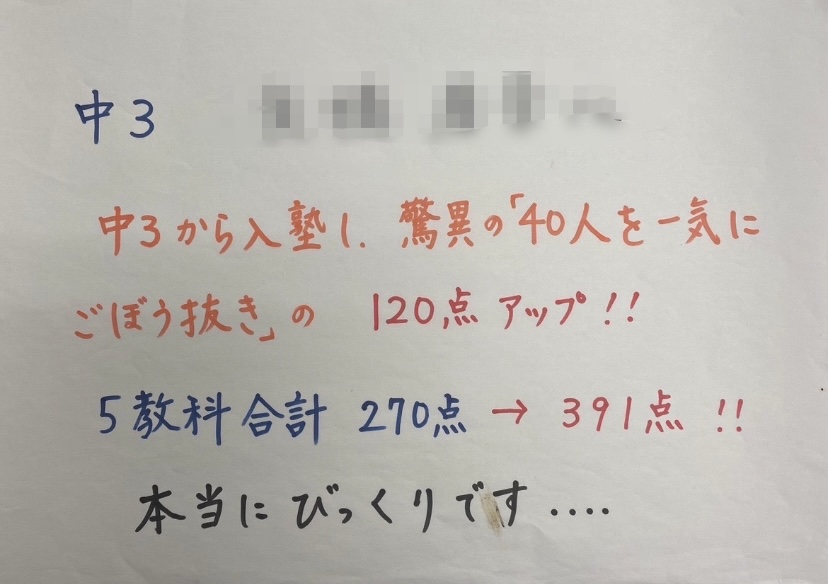 中3
中3から入塾し、驚異の「40人を一気に
ごぼう抜き」の 120点アップ!!
5教科合計 270点→391点!!
本当にびっくりです‥‥